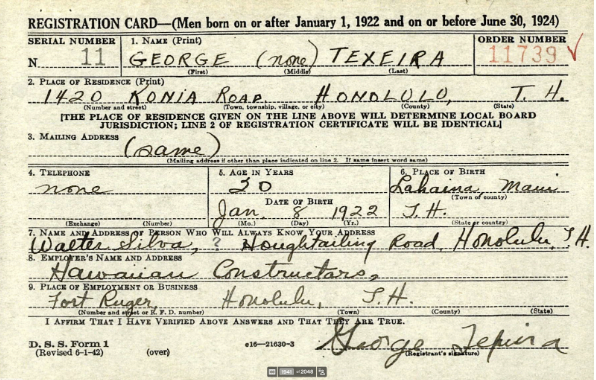 REGISTRATION CARD—(Men born on or after January 1, 1922 and on or before June 30, 1924)
SERIAL NUMBER 1. NAME (Print) ORDER NUMBER
N 11 GEORGE (none) TEXEIRA 11739
(First) (Middle) (Last)
2. PLACE OF RESIDENCE (Print)
1420 KONIA ROAD HONOLULU, T. H.
(Number and street) (Town, township, village, or city) (County) (State)
[THE PLACE OF RESIDENCE GIVEN ON THE LINE ABOVE WILL DETERMINE LOCAL BOARD
JURISDICTION; LINE 2 OF REGISTRATION CERTIFICATE WILL BE IDENTICAL]
3. MAILING ADDRESS
(same)
(Mailing address if other than place indicated on line 2. If same insert word same)
4. TELEPHONE 5. AGE IN YEARS 6. PLACE OF BIRTH
none 20 Lahaina, Maui
DATE OF BIRTH (Town of county)
Jan. 8 1922 T.H.
(Exchange) (Number) (Mo.) (Day) (Yr.) (State or country)
7. NAME AND ADDRESS OF PERSON WHO WILL ALWAYS KNOW YOUR ADDRESS
Walter Silva, ? Houghtailing Road, Honolulu, T.H.
8. EMPLOYER'S NAME AND ADDRESS
Hawaiian Constructors,
9. PLACE OF EMPLOYMENT OR BUSINESS
Fort Ruger, Honolulu, T.H.
(Number and street or R. F. D. number) (Town) (County) (State)
I AFFIRM THAT I HAVE VERIFIED ABOVE ANSWERS AND THAT THEY ARE TRUE.
D. S. S. Form 1
(Revised 6-1-42) (over) c16—21630-3 George
(Registrant's signature)